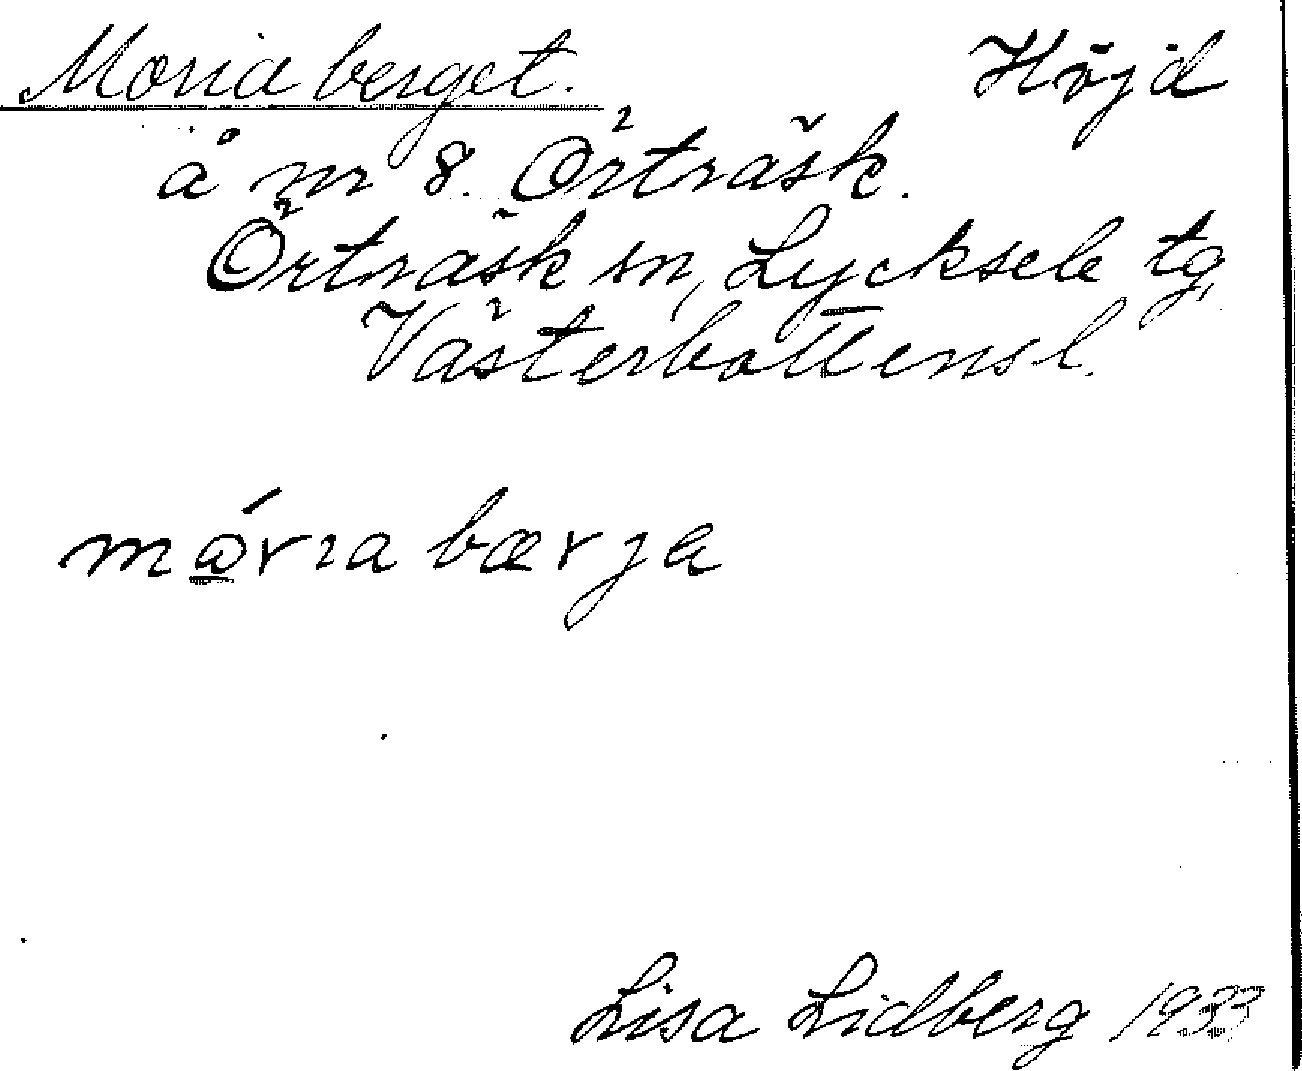 Moriaberget. Höjd
å nr 8. Örträsk.
Örträsk sn, Lycksele tg,
Västerbottensl.
mώ̲rıa bærjа
Lisa Lidberg 1933